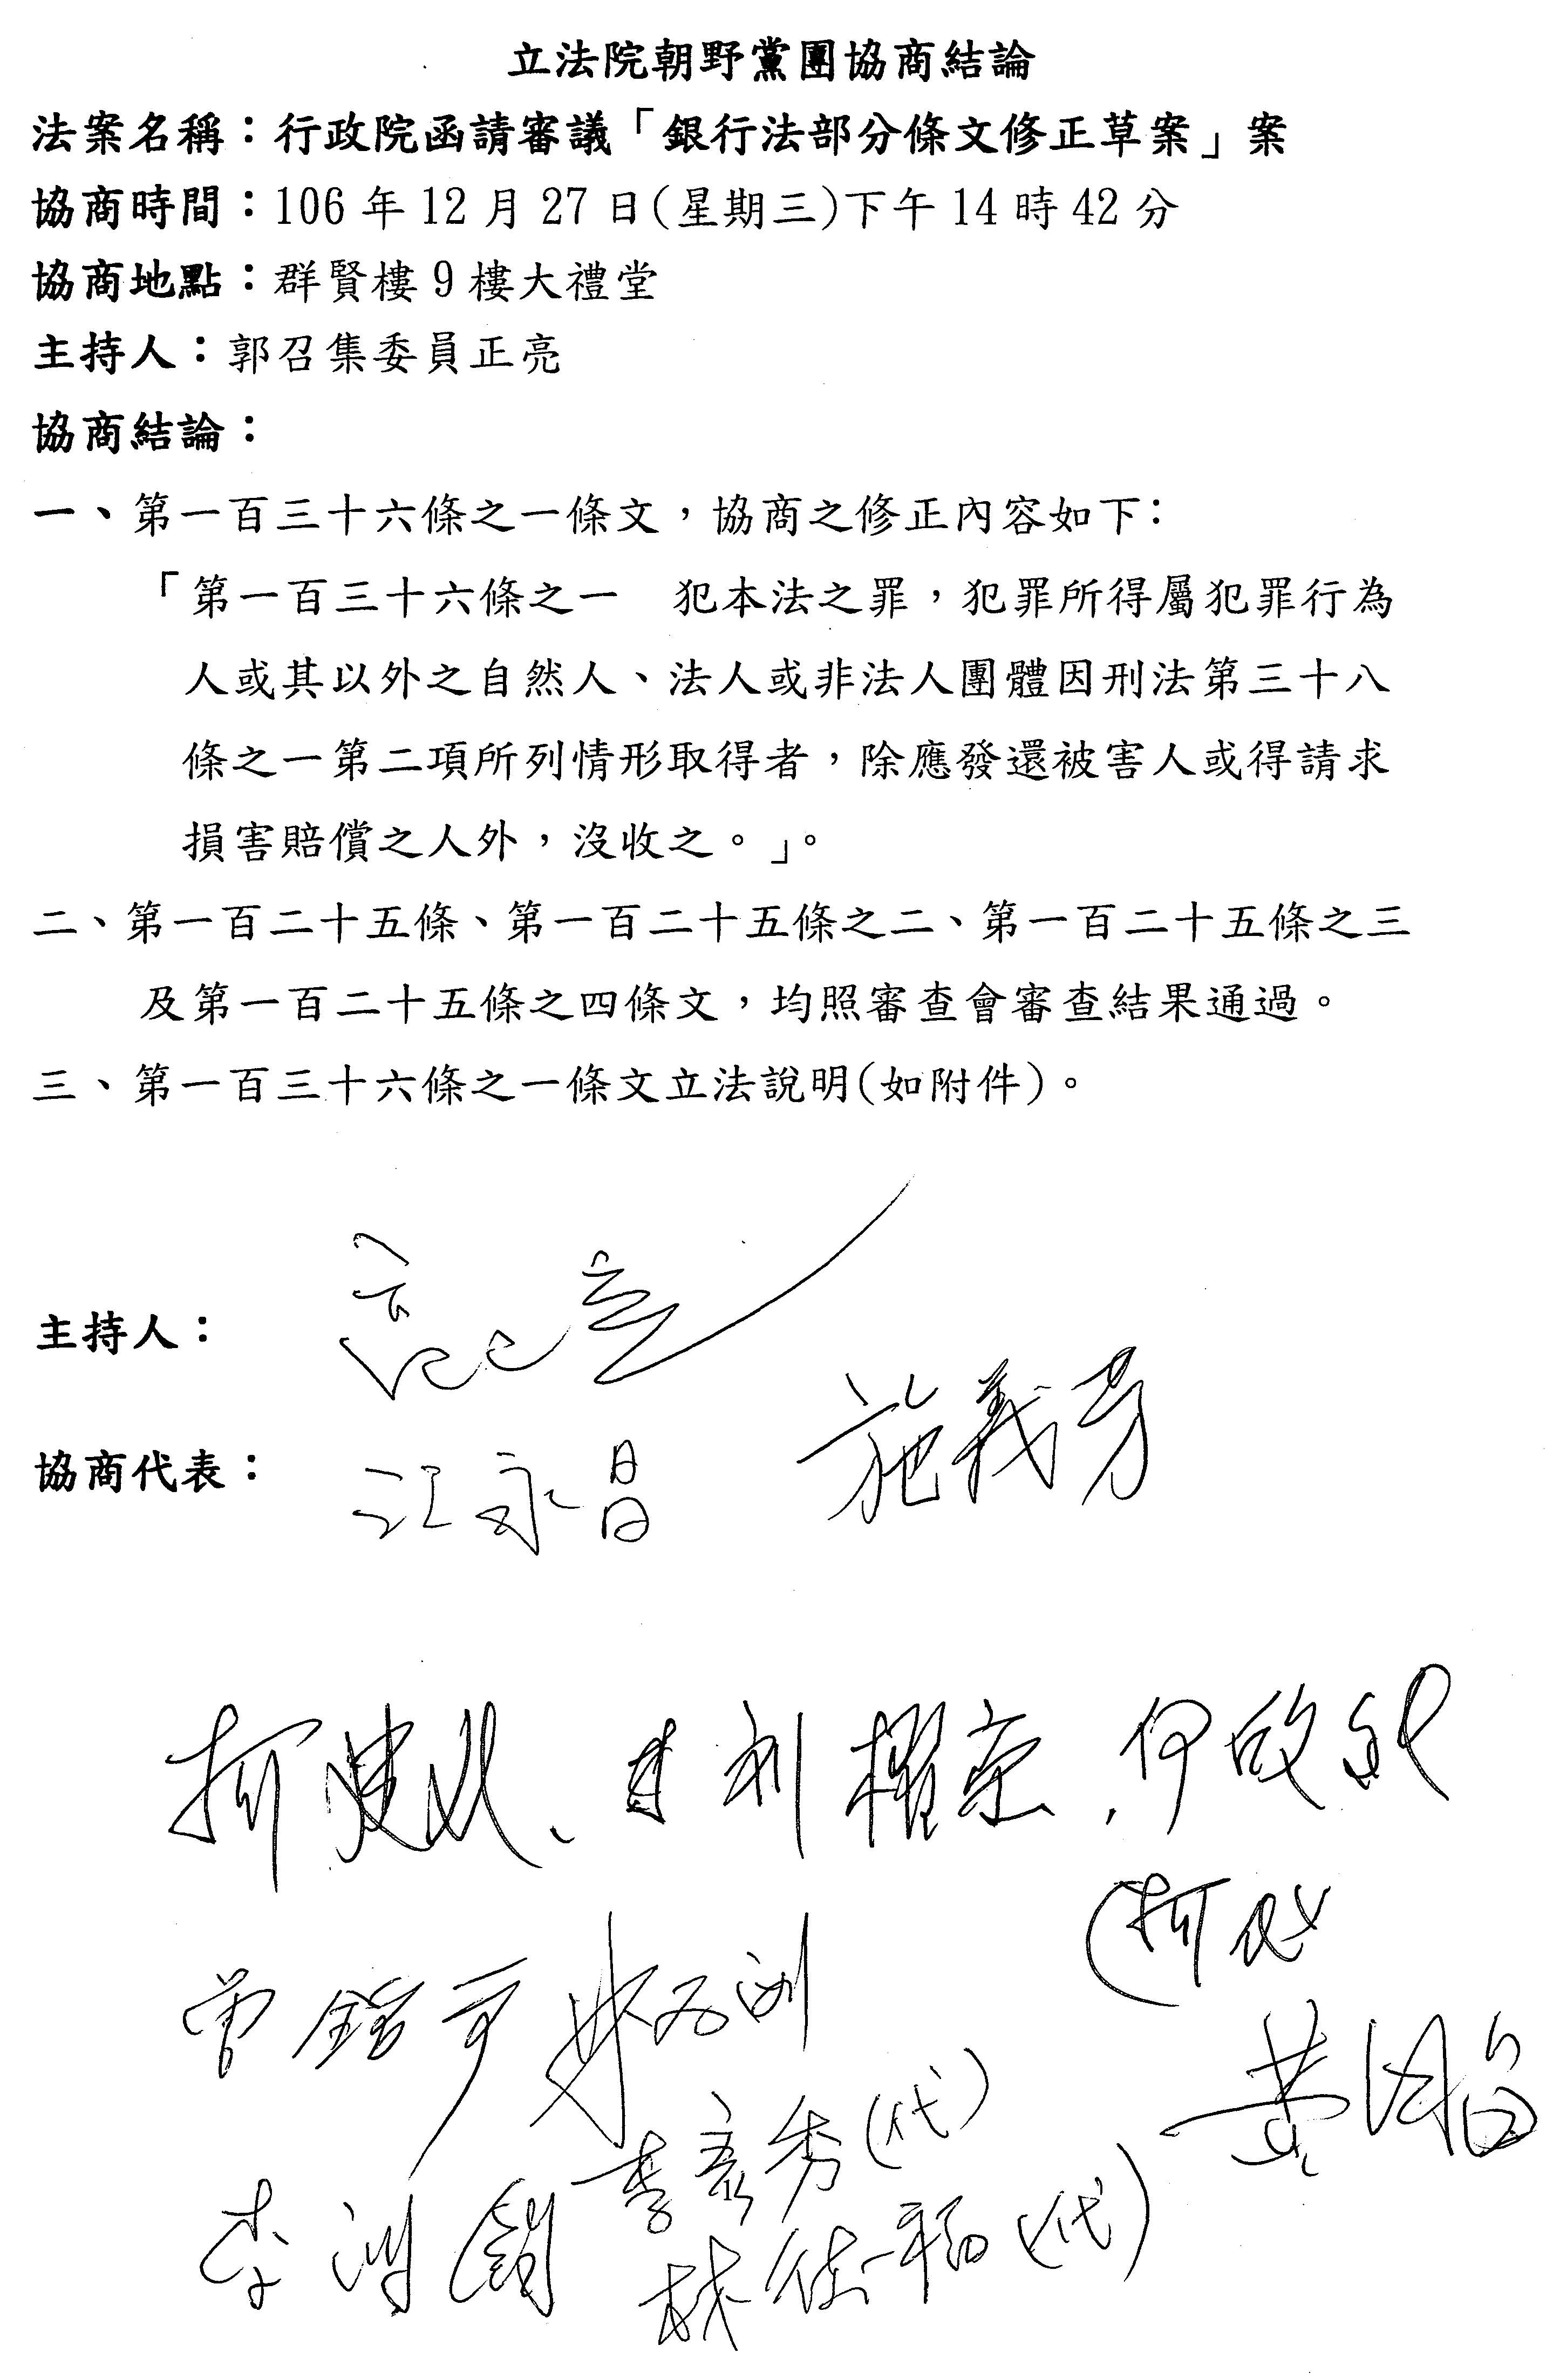 立法院朝野黨團協商結論
法案名稱：行政院函請審議「銀行法部分條文修正草案」案
協商時間：106年12月27日(星期三)下午14時42分
協商地點：群賢樓9樓大禮堂
主持人：郭召集委員正亮
協商結論：
一、第一百三十六條之一條文，協商之修正內容如下：
「第一百三十六條之一　犯本法之罪，犯罪所得屬犯罪行為
人或其以外之自然人、法人或非法人團體因刑法第三十八
條之一第二項所列情形取得者，除應發還被害人或得請求
損害賠償之人外，沒收之。」。
二、第一百二十五條、第一百二十五條之二、第一百二十五條之三
及第一百二十五條之四條文，均照審查會審查結果通過。
三、第一百三十六條之一條文立法說明(如附件)。
主持人：
協商代表：江永昌 施義芳
李鴻鈞 李彥秀(代)
林德福(代)